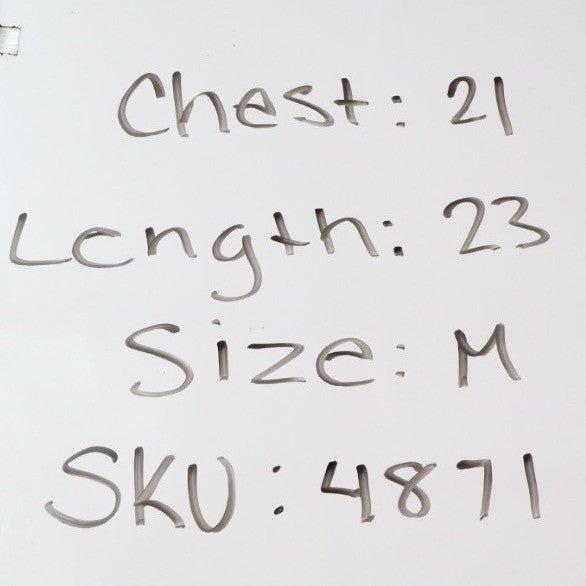 Chest: 21
Length: 23
Size: M
SKU: 4871